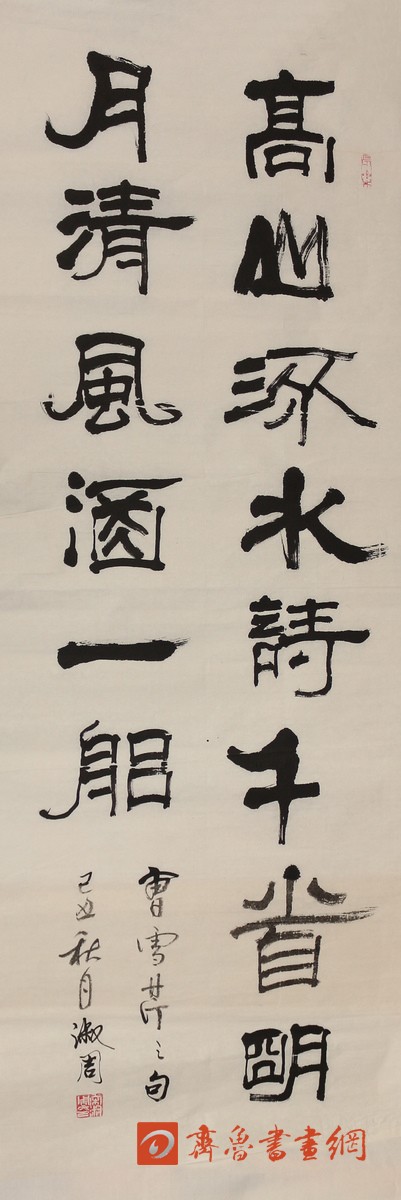 高山流水詩千首明
月清風酒一船
曹雪芹之句
己丑秋月淑周
齊魯書畫網